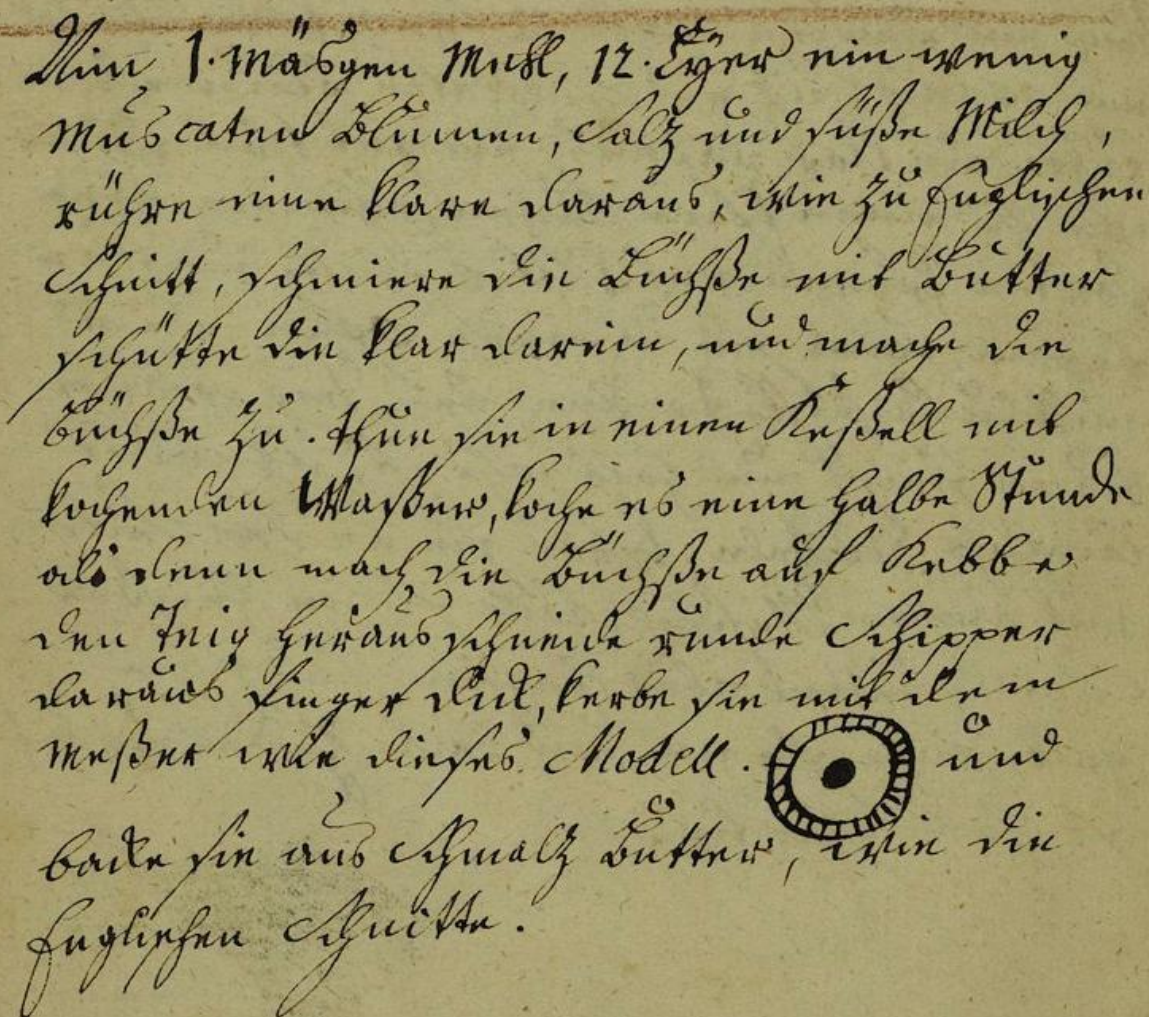 Nim 1. Mäsgen Mehl, 12. Eÿer ein wenig
Muscaten Blumen, Saltz und süße Milch,
rühre eine klare daraus, wie zu Englischen
Schnitt, schmiere die Büchße mit Butter
schütte die klar darein, und mache die
büchße zu. thue sie in einen Keßell mit
kochenden Waßer, koche es eine halbe Stunde
als denn mach die Büchße auf Kebbe
den Teig heraus schneide runde Schipper
daraus finger dick, kerbe sie mit dem
Meßer wie dieses Modell. und
backe sie aus Schmaltz Butter, wie die
Englischen Schnitte.